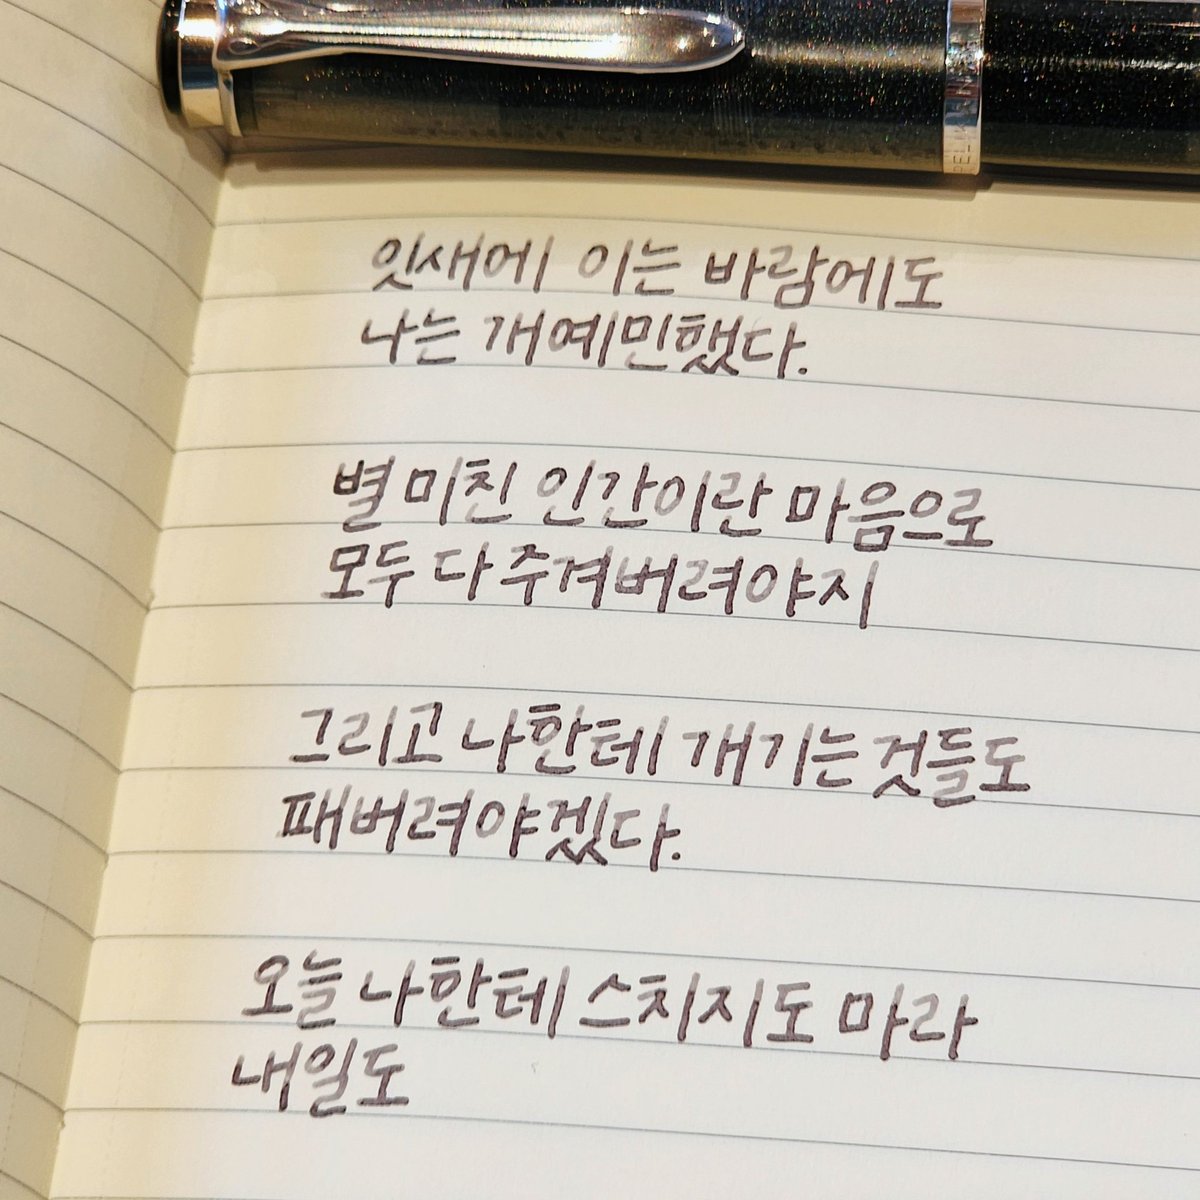 PELIKAN
잇새에 이는 바람에도
나는 개예민했다.
별 미친 인간이란 마음으로
모두 다 주겨버려야지
그리고 나한테 개기는 것들도
패버려야겠다.
오늘 나한테 스치지도 마라
내일도